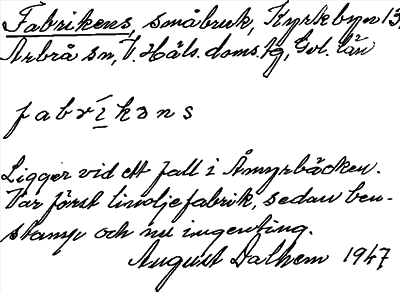 Fabrikens, småbruk, Kyrkbyn 13,
Arbrå sn, V. Häls. doms. tg, Gvl. län
fabrikəns
Ligger vid ett fall i Åmyrbäcken.
Var först linoljefabrik, sedan ben-
stamp och nu ingenting.
August Dalhem 1947